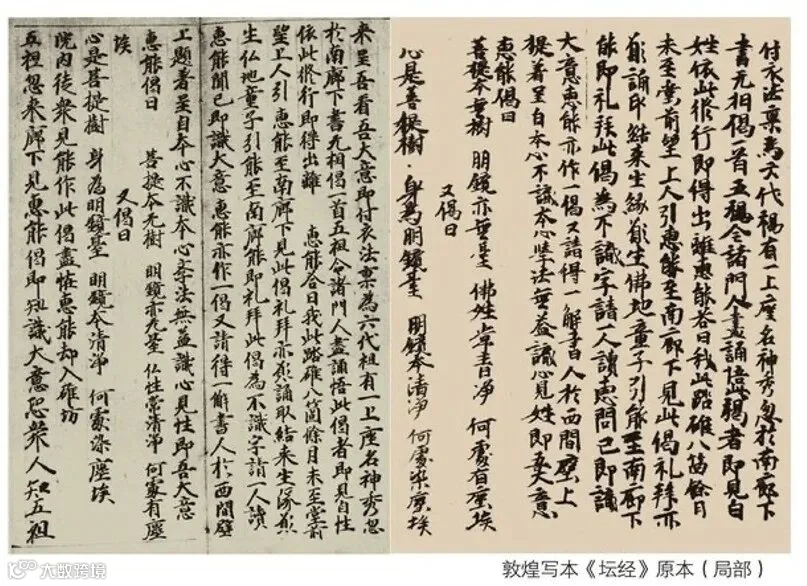 付衣法稟為六代褐有一上座名神秀忽於南廊下
書无相偈一首五祖令諸門人盡誦悟此偈者即見自
姓依此修行即得出離惠能答曰我此踏碓八箇餘月
未至堂前望上人引惠能至南廊下見此偈礼拜亦
願誦取結来生緣願生佛地童子引能至南廊下
能即礼拜此偈為不識字請一人讀惠問已即識
大意惠能亦作一偈又請得一解書人於西間壁上
提着呈自本心不識本心學法無益識心見姓即吾大意
惠能偈曰
菩提本無樹 明鏡亦無臺 佛姓常青净 何處有塵埃
又偈曰
心是菩提樹 身為明鏡臺 明鏡本清净 何處染塵埃
来呈吾看吾大意即付衣法稟為六代祖有一上座名神秀忽
於南廊下書无相偈一首五祖令諸門人盡誦悟此偈者即見自性
依此修行即得出離 惠能答曰我此踏碓八箇餘月未至堂前
望上人引惠能至南廊下見此偈礼拜亦願誦取結来生緣願
生仏地童子引能至南廊能即礼拜此偈為不識字請一人讀
惠能聞已即識大意惠能亦作一偈又請得一解書人於西間壁
上題着呈自本心不識本心斈法無益識心見性即吾大意
惠能偈曰 菩提本无樹 明鏡亦无臺 仏性常清净 何處有塵
埃 又偈曰
心是菩提樹 身為明鏡臺 明鏡本清净 何處染塵埃
院内徒衆見能作此偈盡恠惠能却入碓坊
五祖忽来廊下見惠能偈即知識大意恐衆人知五祖
敦煌写本《坛经》原本（局部）
大数跨境